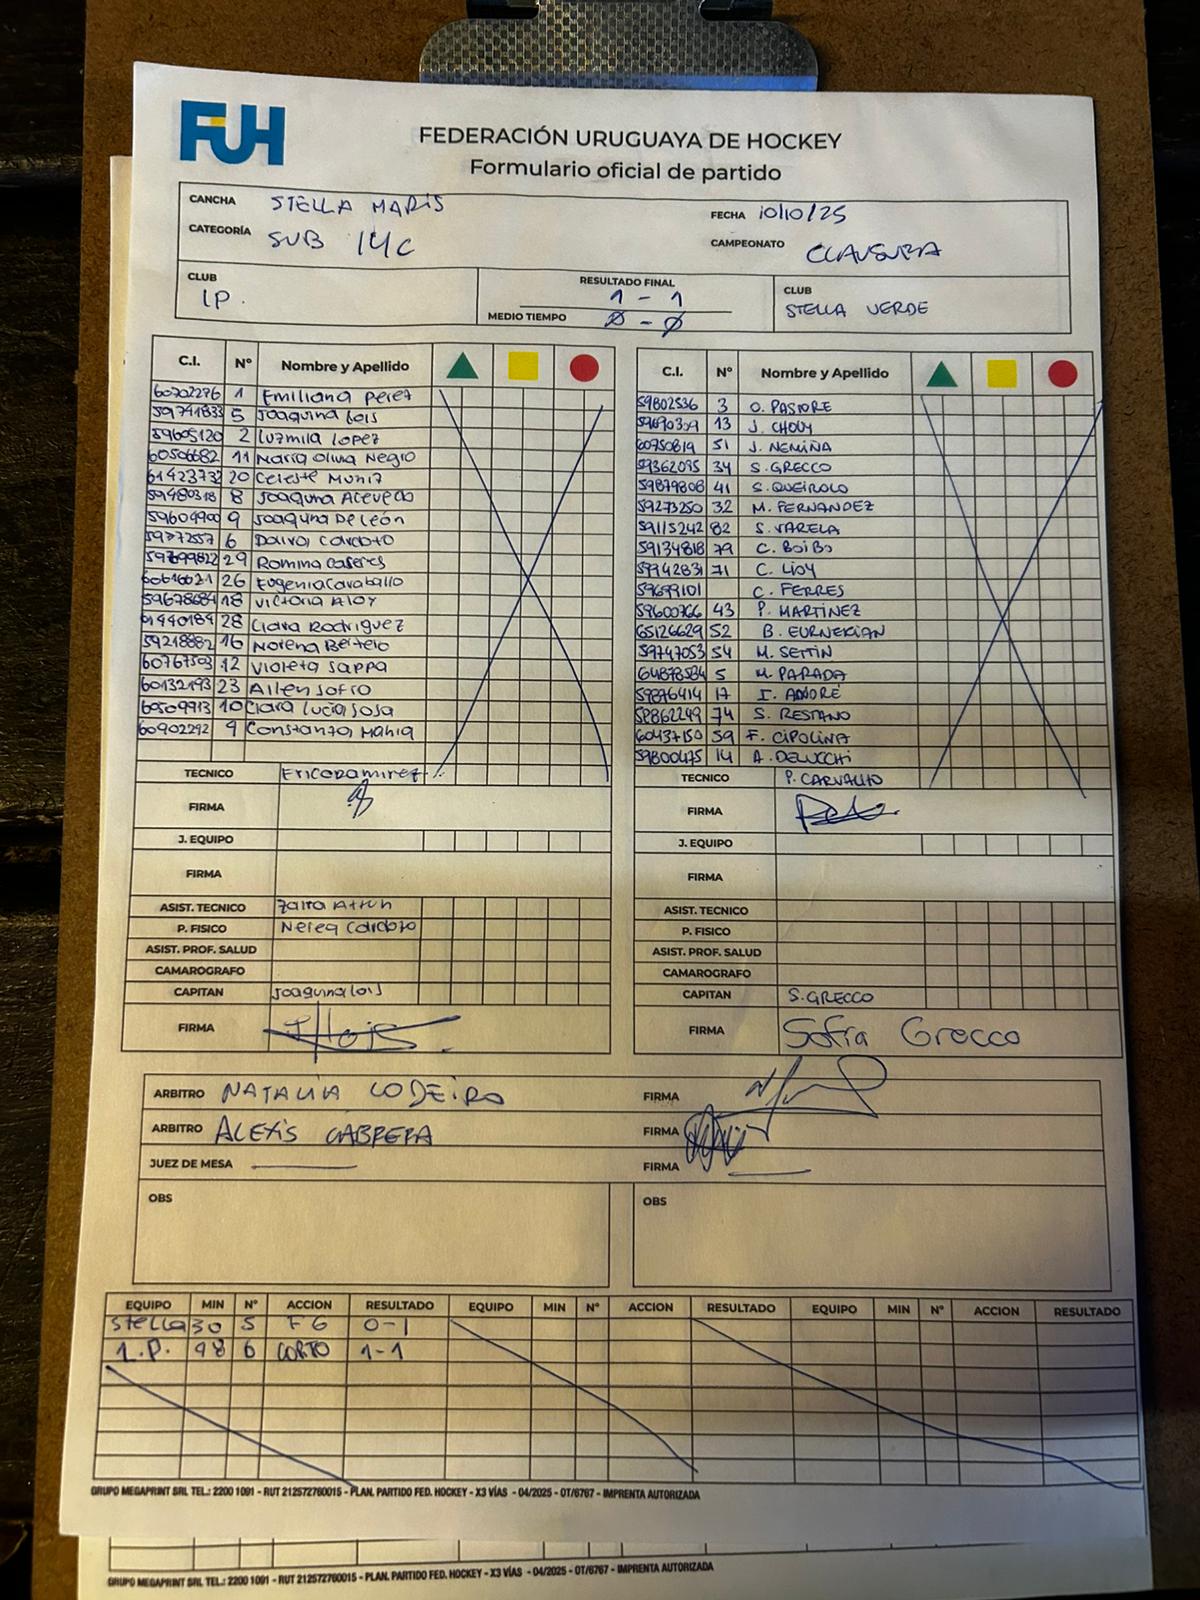 FUH
FEDERACIÓN URUGUAYA DE HOCKEY
Formulario oficial de partido
CANCHA STELLA MARIS
FECHA 10/10/25
CATEGORÍA SUB 14C
CAMPEONATO CLAUSURA
CLUB
IP.
RESULTADO FINAL
1 - 1
MEDIO TIEMPO 0 - 0
CLUB
STELLA VERDE
C.I. Nº Nombre y Apellido
60702276 1 Emiliana Perez
59741833 5 Joaquina Lois
59605120 2 Luzmila Lopez
60506682 11 María Olivia Negro
61423732 20 Celeste Muniz
59480318 8 Joaquina Acevedo
59604900 9 Joaquina De León
6 Cardozo
29 Romina Caseres
26 Eugenia Caraballo
59678684 18 Victoria Aloy
61440184 28 Clara Rodriguez
59218882 16 Morena Bertelo
60767503 12 Violeta Sappa
60132193 23
60509913 10 Clara Lucia Sosa
60902292 4 Constanza
TECNICO
FIRMA
J. EQUIPO
FIRMA
ASIST. TECNICO Zaira
P. FISICO Nerea Cardozo
ASIST. PROF. SALUD
CAMAROGRAFO
CAPITAN Joaquina Lois
FIRMA
C.I. Nº Nombre y Apellido
59802536 3 O. PASTORE
13 J. CHOUY
60750819 51 J. NEMIÑA
59362095 34 S. GRECCO
59879808 41 S. QUEIROLO
59273250 32 M. FERNANDEZ
59115242 82 S. VARELA
59134818 79 C. BOIBO
59942831 71 C. LIOY
59699101 C. FERRES
59600766 43 P. MARTINEZ
65126629 52 B. EURNEKIAN
59747053 54 M. SETTIN
64878584 5 M. PARADA
59876414 17 I. AMORE
58862249 74 S. RESTANO
60437150 59 F. CIPOLINA
59800475 14 A. DELUCCHI
TECNICO P. CARVALHO
FIRMA
J. EQUIPO
FIRMA
ASIST. TECNICO
P. FISICO
ASIST. PROF. SALUD
CAMAROGRAFO
CAPITAN S. GRECCO
FIRMA Sofía Grecco
ARBITRO NATALIA LODEIRO FIRMA
ARBITRO ALEXIS CABRERA FIRMA
JUEZ DE MESA FIRMA
OBS OBS
EQUIPO MIN Nº ACCION RESULTADO EQUIPO MIN Nº ACCION RESULTADO EQUIPO MIN Nº ACCION RESULTADO
Stella 30 5 FG 0-1
I.P. 48 6 CORTO 1-1
GRUPO MEGAPRINT SRL TEL.: 2200 1091 - RUT 212572760015 - PLAN. PARTIDO FED. HOCKEY - X3 VÍAS - 04/2025 - OT/6767 - IMPRENTA AUTORIZADA
GRUPO MEGAPRINT SRL TEL.: 2200 1091 - RUT 212572760015 - PLAN. PARTIDO FED. HOCKEY - X3 VÍAS - 04/2025 - OT/6767 - IMPRENTA AUTORIZADA